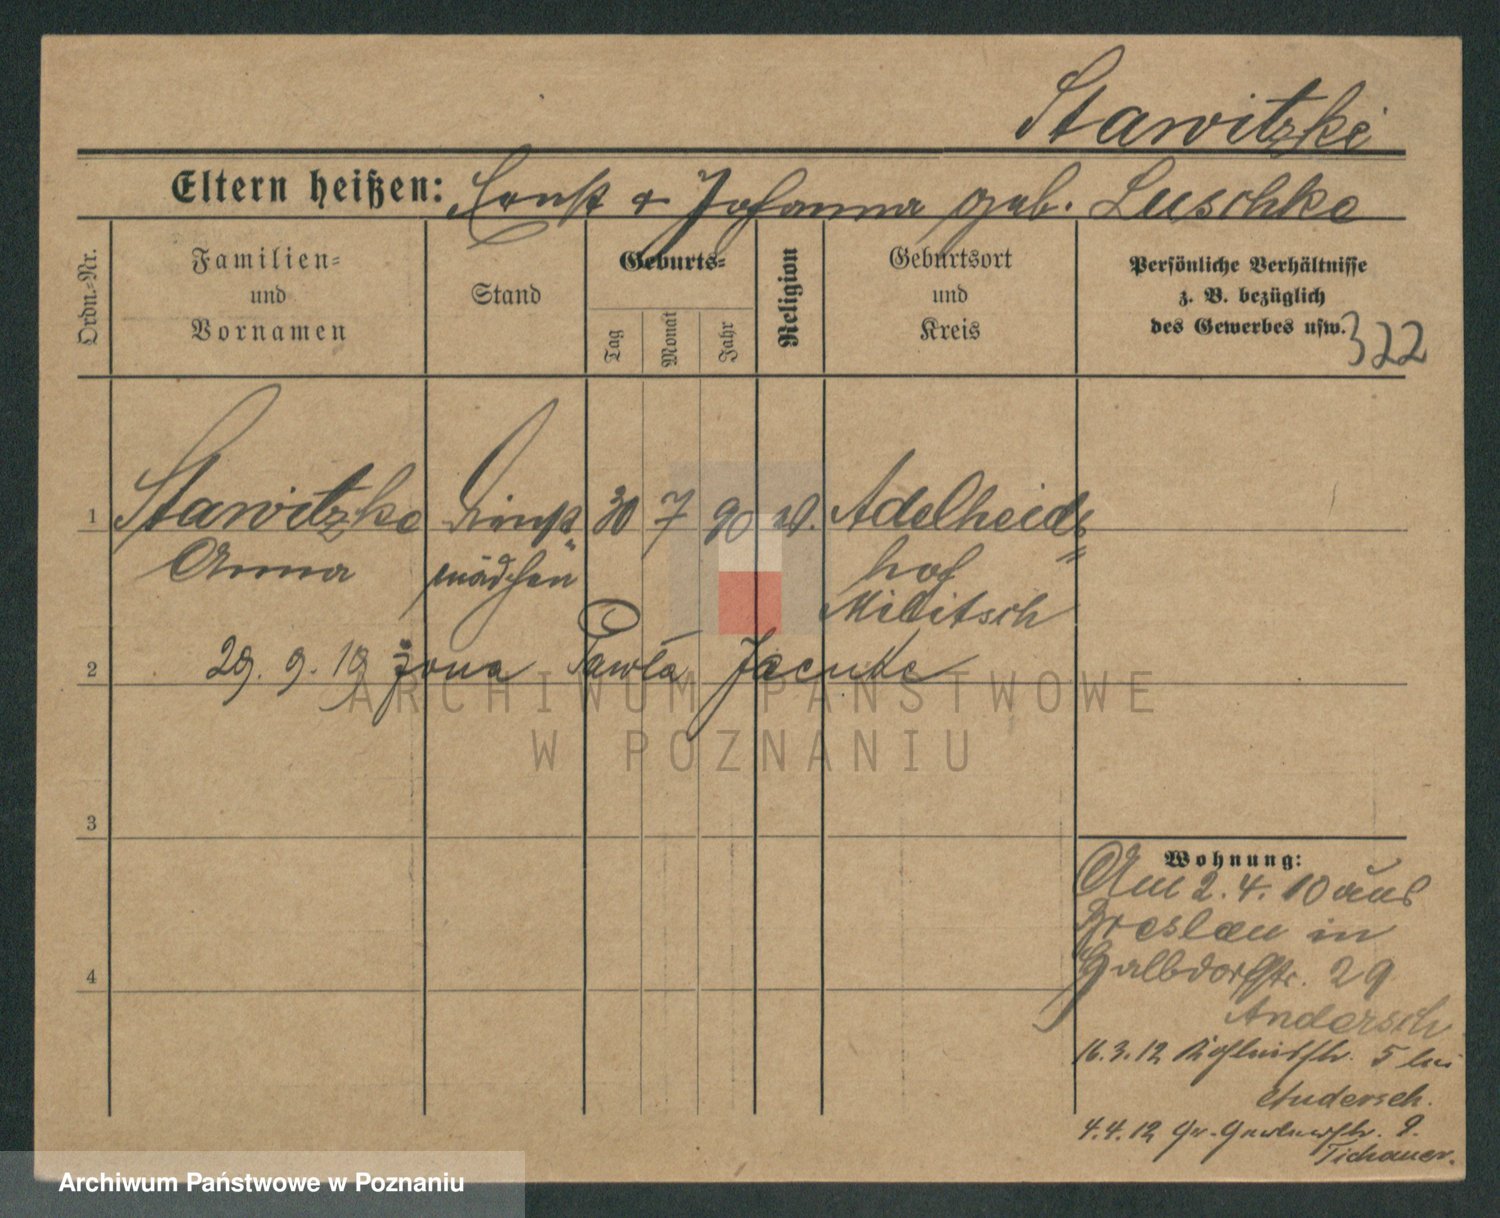 Stawitzke
Eltern heißen: Ernst & Johanna geb. Luschke
Ordn.-Nr.
Familien-
und
Vornamen
Stand
Geburts-
Tag
Monat
Jahr
Religion
Geburtsort
und
Kreis
Persönliche Verhältnisse
z. B. bezüglich
des Gewerbes usw.
322
1 Stawitzke Dienst 30 7 90 ev. Adelheids
Anna mädchen hof
Militsch
2 29. 9. 19 żona Pawła
3
4
Wohnung:
Am 2. 4. 10 aus
Breslau in
29
Andersch
16.3.12 5 bei
Andersch.
4.4.12 9.
Tichauer.
ARCHIWUM PAŃSTWOWE
W POZNANIU
Archiwum Państwowe w Poznaniu